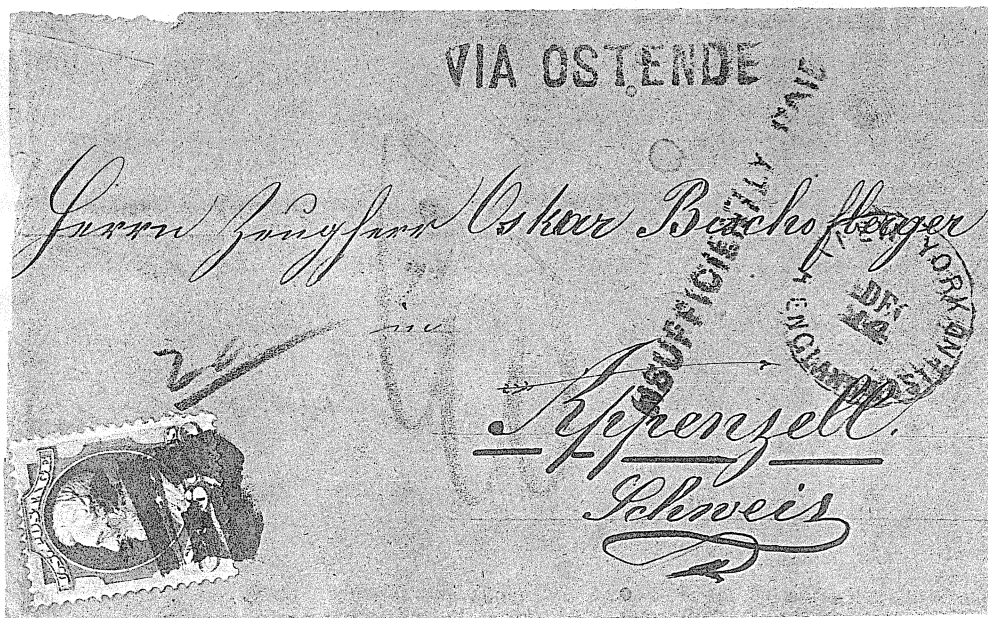 VIA OSTENDE
INSUFFICIENTLY PAID
Herrn Zeugherr Oskar Buchofberger
NEW YORK
DEC
14
in
Appenzell.
Schweis